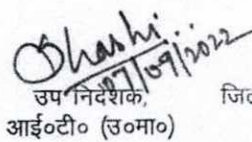 Shashi
07/09/2022
उप निदेशक, जि
आई०टी० (उ०मा०)